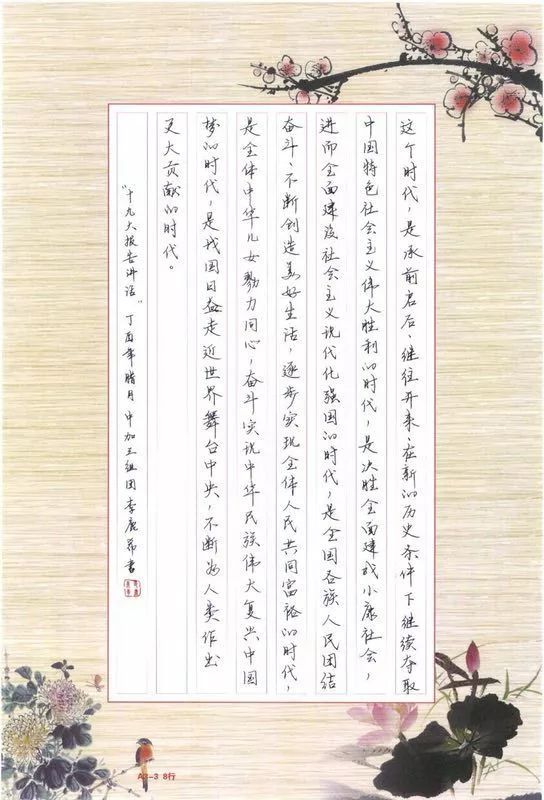 这个时代，是承前启后、继往开来、在新的历史条件下继续夺取
中国特色社会主义伟大胜利的时代，是决胜全面建成小康社会，
进而全面建设社会主义现代化强国的时代，是全国各族人民团结
奋斗、不断创造美好生活，逐步实现全体人民共同富裕的时代，
是全体中华儿女勠力同心，奋斗实现中华民族伟大复兴中国
梦的时代，是我国日益走近世界舞台中央，不断为人类作出
更大贡献的时代。
“十九大报告讲话”丁酉年腊月 中加三组团李鹿希书
A3-3 8行